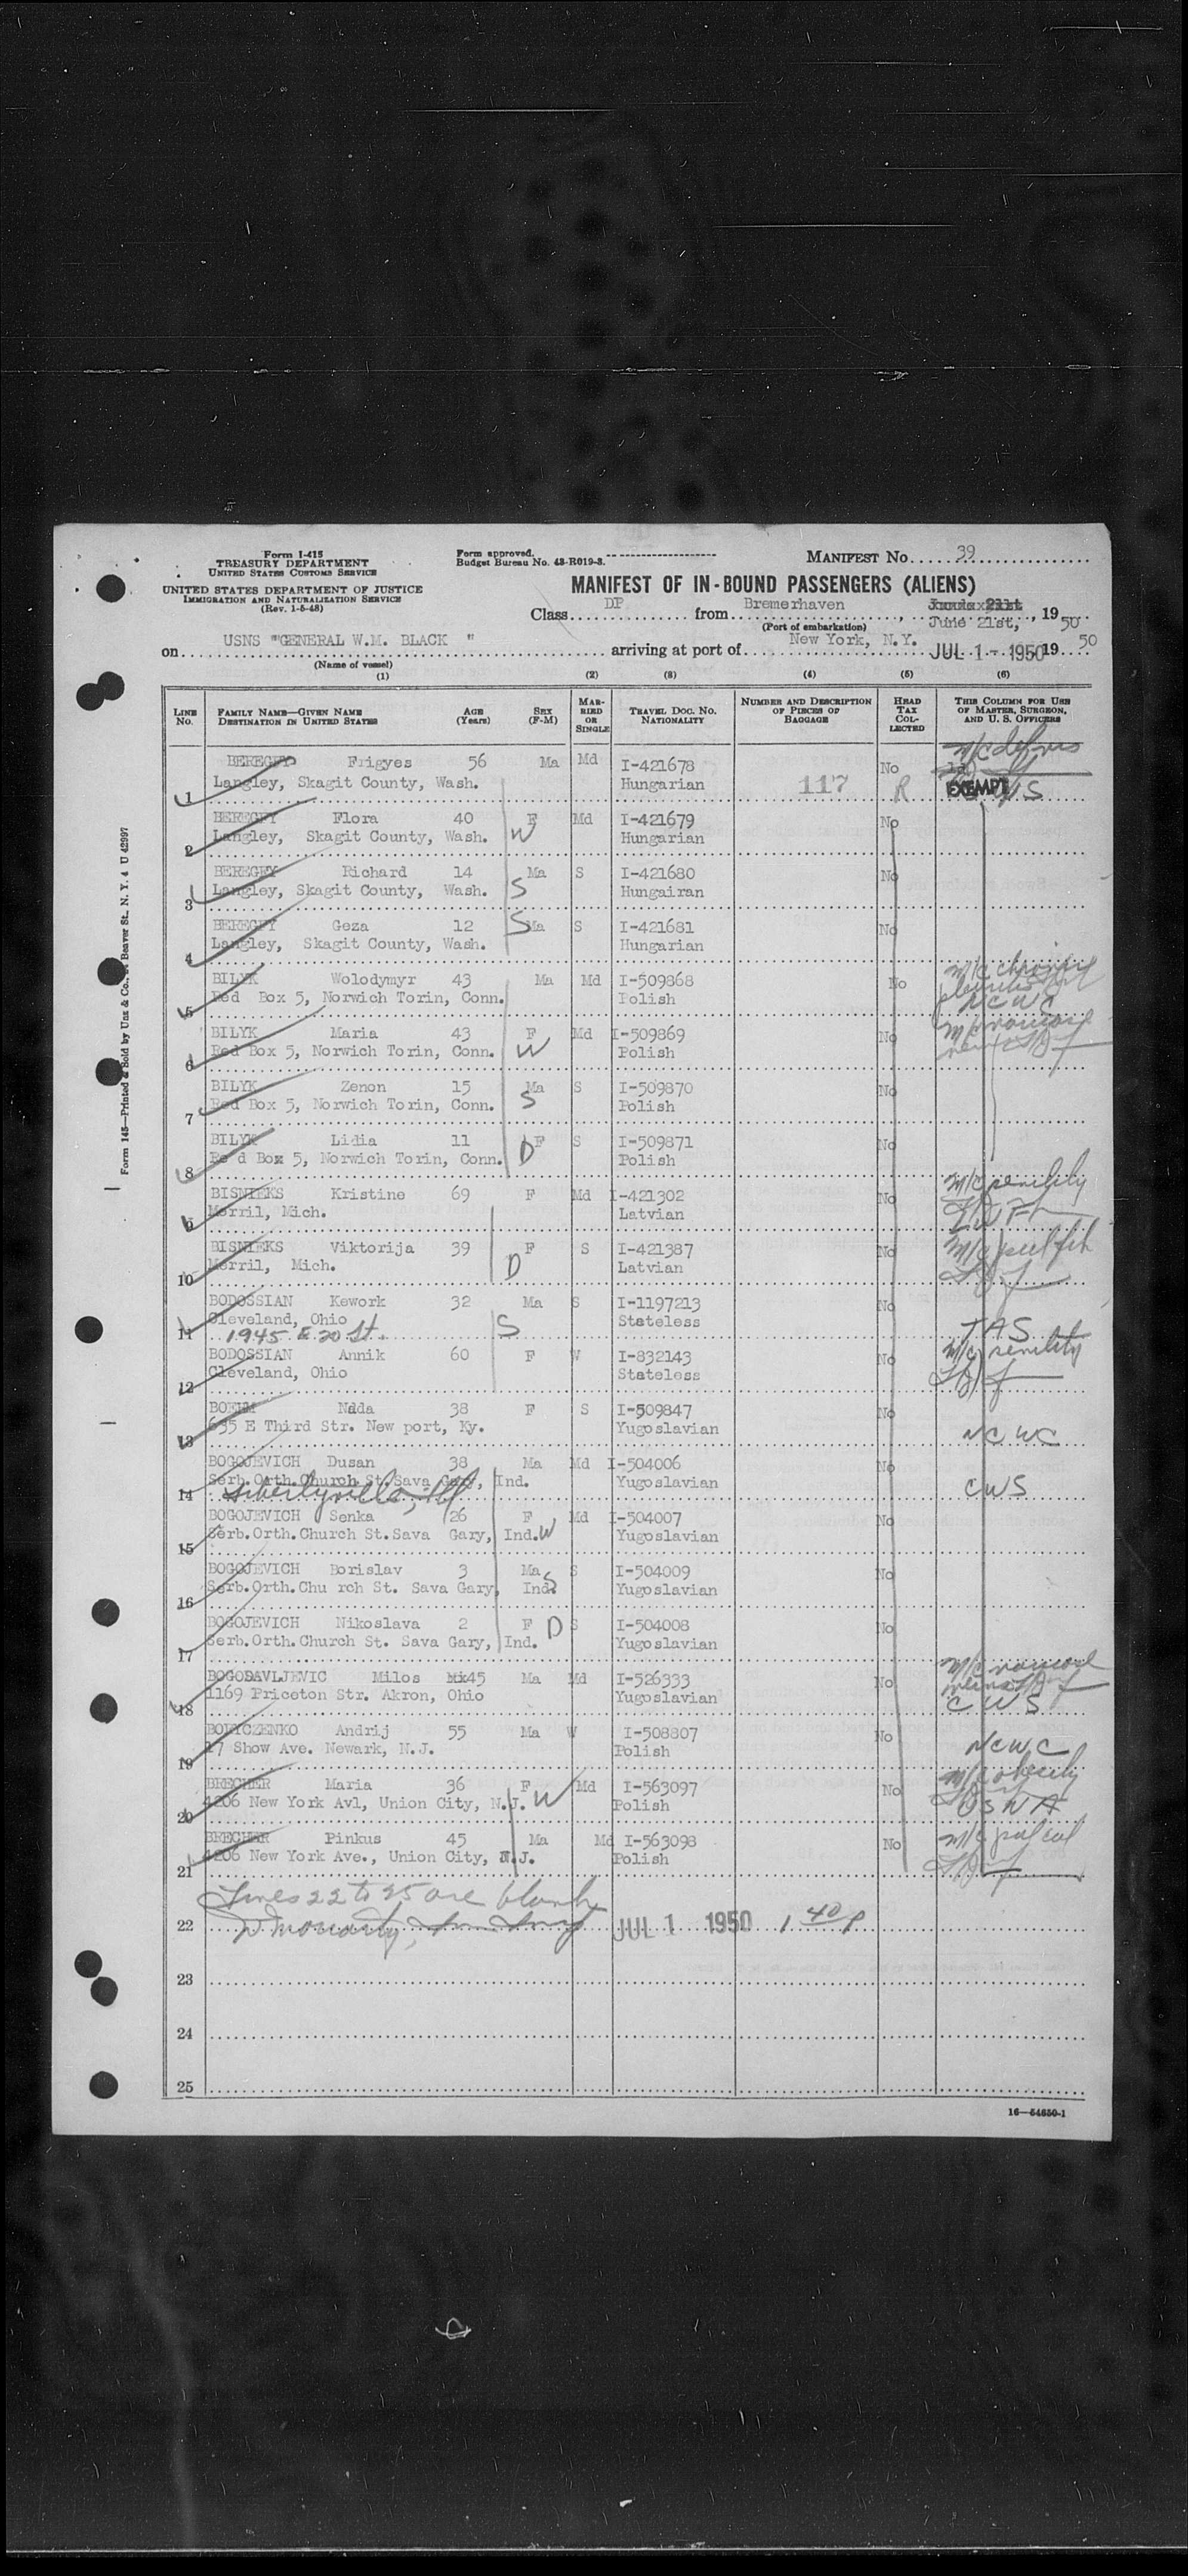 Form I-415
TREASURY DEPARTMENT
UNITED STATES CUSTOMS SERVICE
UNITED STATES DEPARTMENT OF JUSTICE
IMMIGRATION AND NATURALIZATION SERVICE
(Rev. 1-5-48)
Form approved.
Budget Bureau No. 43-R019-3.
MANIFEST No. 39
MANIFEST OF IN-BOUND PASSENGERS (ALIENS)
Class DP from Bremerhaven, June 21st, 1950
(Port of embarkation)
on USNS "GENERAL W.M. BLACK " arriving at port of New York, N.Y. JUL 1 - 1950 19 50
(Name of vessel)
(1) (2) (3) (4) (5) (6)
LINE No. FAMILY NAME—GIVEN NAME DESTINATION IN UNITED STATES AGE (Years) SEX (F-M) MARRIED OR SINGLE TRAVEL DOC. NO. NATIONALITY NUMBER AND DESCRIPTION OF PIECES OF BAGGAGE HEAD TAX COLLECTED THIS COLUMN FOR USE OF MASTER, SURGEON, AND U. S. OFFICERS
BEREGFY Frigyes 56 Ma Md I-421678 No
1 Langley, Skagit County, Wash. Hungarian 117 R EXEMPT
BEREGFY Flora 40 F Md I-421679 No
2 Langley, Skagit County, Wash. W Hungarian
BEREGFY Richard 14 Ma S I-421680 No
3 Langley, Skagit County, Wash. S Hungairan
BEREGFY Geza 12 S Ma S I-421681 No
4 Langley, Skagit County, Wash. Hungarian
BILYK Wolodymyr 43 Ma Md I-509868 No M/C
5 Red Box 5, Norwich Torin, Conn. Polish NCWC
BILYK Maria 43 F Md I-509869 No
6 Red Box 5, Norwich Torin, Conn. W Polish
BILYK Zenon 15 Ma S I-509870 No
7 Red Box 5, Norwich Torin, Conn. S Polish
BILYK Lidia 11 D F S I-509871 No
8 Re d Box 5, Norwich Torin, Conn. Polish
BISNIEKS Kristine 69 F Md I-421302 No M/C senility
9 Merril, Mich. Latvian
BISNIEKS Viktorija 39 F S I-421387 No M/C
10 Merril, Mich. D Latvian
BODOSSIAN Kework 32 Ma S I-1197213 No
Cleveland, Ohio Stateless
11 1945 E 20 St. S TAS
BODOSSIAN Annik 60 F W I-832143 No M/C senility
12 Cleveland, Ohio Stateless
BOEHM Nada 38 F S I-509847 No
13 635 E Third Str. New port, Ky. Yugoslavian NCWC
BOGOJEVICH Dusan 38 Ma Md I-504006 No
Serb.Orth.Church St.Sava Gary, Ind. Yugoslavian CWS
14 Libertyville, Ill
BOGOJEVICH Senka 26 F Md I-504007 No
15 Serb.Orth.Church St.Sava Gary, Ind. W Yugoslavian
BOGOJEVICH Borislav 3 Ma S I-504009 No
16 Serb.Orth.Chu rch St. Sava Gary, Ind. S Yugoslavian
BOGOJEVICH Nikoslava 2 F D S I-504008 No
17 Serb.Orth.Church St. Sava Gary, Ind. Yugoslavian
BOGODAVLJEVIC Milos 45 Ma Md I-526333 No
18 1169 Priceton Str. Akron, Ohio Yugoslavian CWS
BOLYCZENKO Andrij 55 Ma W I-508807 No
19 17 Show Ave. Newark, N.J. Polish NCWC
BRECHER Maria 36 F Md I-563097 No M/C obesity
20 4206 New York Avl, Union City, N.J. W Polish USNA
BRECHER Pinkus 45 Ma Md I-563098 No M/C
21 4206 New York Ave., Union City, N.J. Polish
Lines 22 to 25 are blank
22 JUL 1 1950 1 40 P
23
24
25
16—54650-1
Form 145—Printed & Sold by Unz & Co., Beaver St., N. Y. 4 U 42997